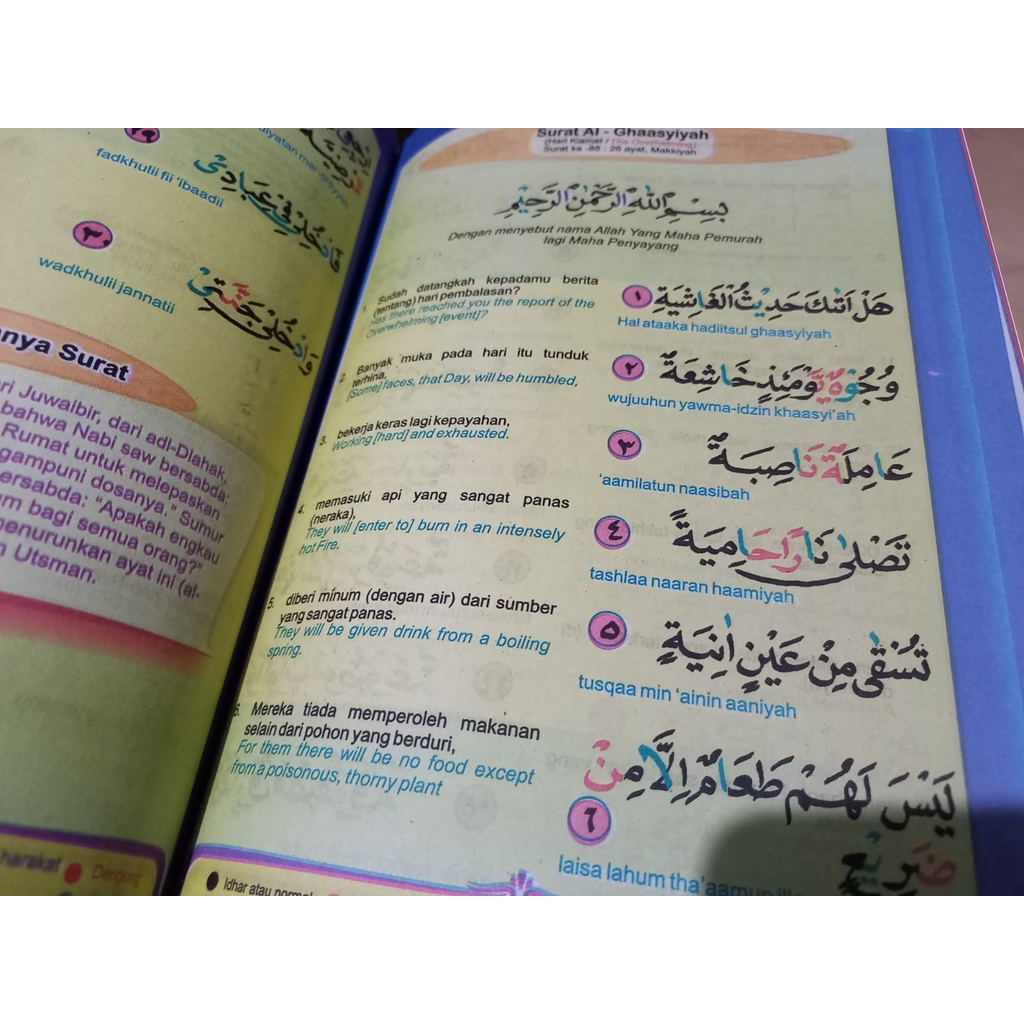 ٢٩
فَادْخُلِيْ فِيْ عِبَادِيْ
fadkhulii fii 'ibaadii
٣٠
وَادْخُلِيْ جَنَّتِيْ
wadkhulii jannatii
nya Surat
ri Juwaibir, dari adl-Dlahak,
bahwa Nabi saw bersabda:
Rumat untuk melepaskan
gampuni dosanya." Sumur
ersabda: "Apakah engkau
m bagi semua orang?"
menurunkan ayat ini (al-
n Utsman.
harekat
Dengung
Surat Al - Ghaasyiyah
(Hari Kiamat / The Overhelming)
Surat ke -88 : 26 ayat, Makkiyah
بِسْمِ اللّٰهِ الرَّحْمٰنِ الرَّحِيْمِ
Dengan menyebut nama Allah Yang Maha Pemurah
lagi Maha Penyayang
هَلْ اَتٰىكَ حَدِيْثُ الْغَاشِيَةِ ١
Hal ataaka hadiitsul ghaasyiyah
1. Sudah datangkah kepadamu berita
(tentang) hari pembalasan?
Has there reached you the report of the
Overwhelming [event]?
وُجُوْهٌ يَّوْمَئِذٍ خَاشِعَةٌ ٢
wujuuhun yawma-idzin khaasyi'ah
2. Banyak muka pada hari itu tunduk
terhina,
[Some] faces, that Day, will be humbled,
عَامِلَةٌ نَاصِبَةٌ ٣
'aamilatun naasibah
3. bekerja keras lagi kepayahan,
Working [hard] and exhausted.
تَصْلٰى نَارًا حَامِيَةً ٤
tashlaa naaran haamiyah
4. memasuki api yang sangat panas
(neraka),
They will [enter to] burn in an intensely
hot Fire.
تُسْقٰى مِنْ عَيْنٍ اٰنِيَةٍ ٥
tusqaa min 'ainin aaniyah
5. diberi minum (dengan air) dari sumber
yang sangat panas.
They will be given drink from a boiling
spring.
لَيْسَ لَهُمْ طَعَامٌ اِلَّا مِنْ
ضَرِيْعٍ ٦
laisa lahum tha'aamun
6. Mereka tiada memperoleh makanan
selain dari pohon yang berduri,
For them there will be no food except
from a poisonous, thorny plant
Idhar atau normal